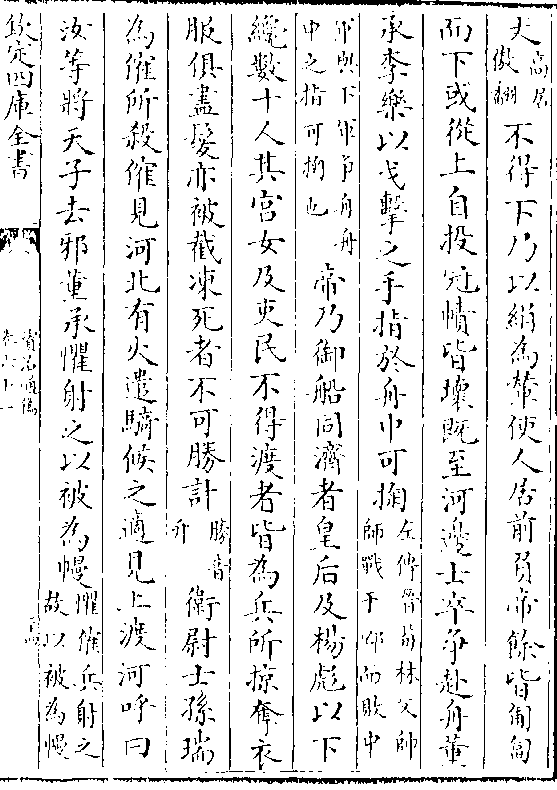 丈高居傲翻不得下乃以絹為輦使人居前負帝餘皆匍匐
而下或從上自投冠幘皆壞既至河邊士卒爭赴舟董
承李樂以戈擊之手指於舟中可掬左傳晉荀林父帥師戰于邲而敗中
軍與下軍爭舟舟中之指可掬也帝乃御船同濟者皇后及楊彪以下
纔數十人其宮女及吏民不得渡者皆為兵所掠奪衣
服俱盡髮亦被截凍死者不可勝計勝音升衛尉士孫瑞
為傕所殺傕見河北有火遣騎候之適見上渡河呼曰
汝等將天子去邪董承懼射之以被為幔懼傕兵射之故以被為幔
欽定四庫全書
資治通鑑
卷六十一